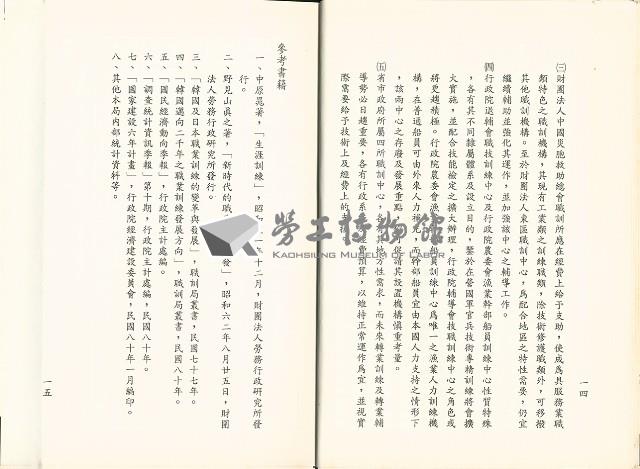 ㈢財團法人中國災胞救助總會職訓所應在經費上給予支助，使成為具服務業職
類特色之職訓機構，其現有工業類之訓練職類，除技術修護職類外，可移撥
其他職訓機構。至於財團法人東區職訓中心，為配合地區之特性需要，仍宜
繼續輔助並強化其運作，並加強該中心之輔導工作。
㈣行政院退輔會職技訓練中心及行政院農委會漁業幹部船員訓練中心性質特殊
，各有其不同隸屬體系及設立目的，鑒於在營國軍官兵技術專精訓練將會擴
大實施，並配合技能檢定之擴大辦理，行政院輔導會技職訓練中心之角色或
將更趨積極。行政院農委會漁 船員訓練中心為唯一之漁業人力訓練機
構，在普通船員可由外來人力補充，而幹部船員宜由本國人力支持之情形下
，該兩中心之存廢及發展重點， 可保請其設置機構慎重考量。
㈤省市政府所屬四所職訓中心，各 其地方性需求，而未來轉業訓練及轉業輔
導勢必日趨重要，各有行政系 經費預算，以維持正常運作為宜，並視實
際需要給予技術上及經費上的支援。
一四
參考書籍
一、中原晃著，「生涯訓練」，昭 年十二月，財團法人勞務行政研究所發
行。
二、野見山眞之著，「新時代的職 發」，昭和六二年八月廿五日，財團
法人勞務行政研究所發行。
三、「韓國及日本職業訓練的變革與發展」，職訓局叢書，民國七十七年。
四、「韓國邁向二千年之職業訓練發展方向」，職訓局叢書，民國八十年。
五、「國民經濟動向季報」，行政院主計處編。
六、「調查統計資訊季報」第十期，行政院主計處編，民國八十年。
七、「國家建設六年計畫」，行政院經濟建設委員會，民國八十年一月編印。
八、其他本局內部統計資料等。
一五
勞工博物館
KAOHSIUNG MUSEUM OF LABOR